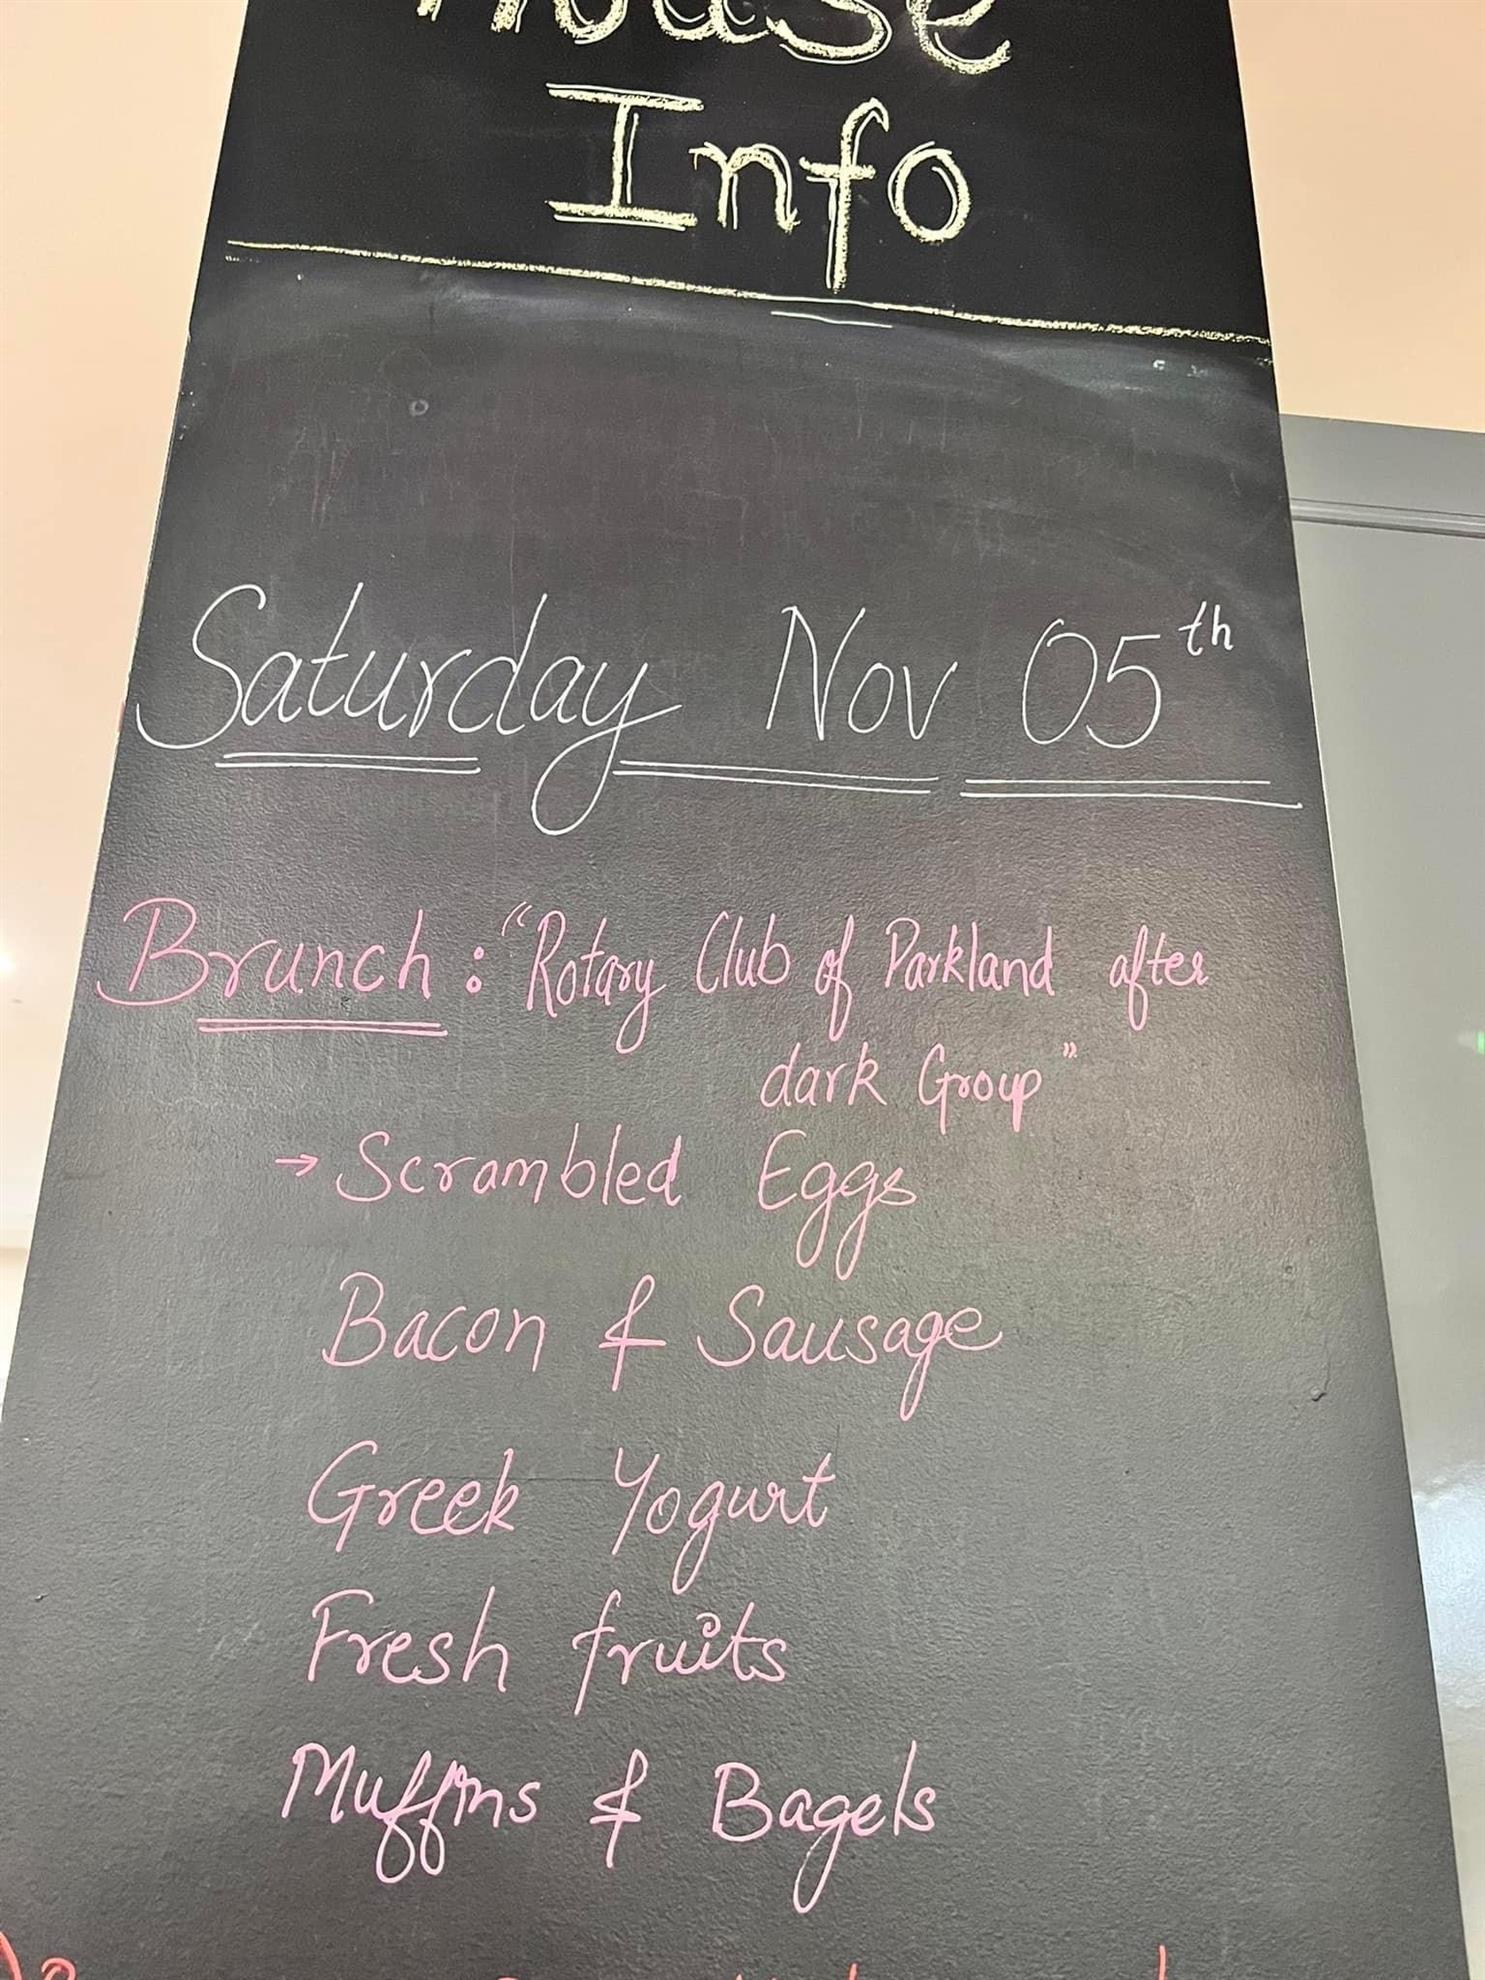 House
Info
Saturday Nov 05th
Brunch: "Rotary Club of Parkland after
dark Group"
→ Scrambled Eggs
Bacon & Sausage
Greek Yogurt
Fresh fruits
Muffins & Bagels